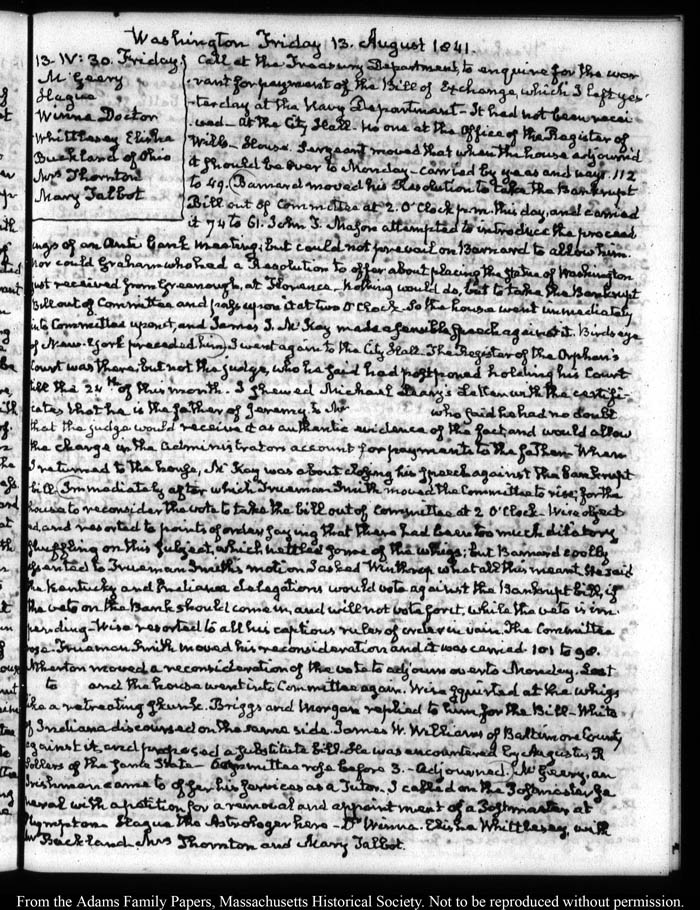 Washington Friday 13. August 1841.
13. IV: 30. Friday
McGeery
Hague
Winna Doctor
Whittlesey Elisha
Buckland of Ohio
Mrs Thornton
Mary Talbot
Call at the Treasury Department, to enquire for the war-
rant for payment of the Bill of Exchange, which I left yes-
terday at the Navy Department. It had not been recei-
ved — at the City Hall. No one at the Office of the Register of
Wills — House. Sergeant moved that when the house adjourn'd
it should be over to Monday — carried by yeas and nays. 112
to 49. Barnard moved his Resolution to take the Bankrupt
Bill out of Committee at 2. O'Clock p.m. this day, and carried
it 74 to 61. John T. Mason attempted to introduce the proceed
ings of an Anti Bank meeting; but could not prevail on Barnard to allow him.
Nor could Graham who had a Resolution to offer about placing the statue of Washington
just received from Greenough, at Florence. Nothing would do, but to take the Bankrupt
Bill out of Committee and pass upon it at two O'Clock. So the house went immediately
into Committee upon it, and James I. McKay made a sensible speech against it. Birdseye
of New-York preceded him, I went again to the City Hall. The Register of the Orphan's
Court was there; but not the judge, who he said had postponed holding his Court
till the 24th of this month. I shewed Michael Leary's Letter with the certifi-
cates that he is the father of Jeremy, to Mr who said he had no doubt
that the judge would receive it as authentic evidence of the fact, and would allow
the charge in the Administrators account for payments to the father. When
I returned to the house, McKay was about closing his speech against the Bankrupt
bill. Immediately after which Trueman Smith moved the Committee to rise; for the
house to reconsider the vote to take the bill out of Committee at 2 O'Clock. Wise object
ed, and resorted to points of order, saying that there had been too much dilatory
shuffling on this subject, which nettled some of the whigs; but Barnard coolly
assented to Trueman Smith's motion. I asked Winthrop what all this meant. He said
the Kentucky and Indiana delegations would vote against the Bankrupt bill, if
the veto on the Bank should come in, and will not vote for it, while the veto is im-
pending. Wise resorted to all his captious rules of order in vain. The Committee
rose. Trueman Smith moved his reconsideration and it was carried 101 to 98.
Atherton moved a reconsideration of the vote to adjourn over to Monday. Lost
to and the house went into Committee again. Wise squirted at the whigs
like a retreating skunk. Briggs and Morgan replied to him for the Bill. White
of Indiana discoursed on the same side. James W. Williams of Baltimore County
against it, and proposed a substitute bill. He was encountered by Augustus R
Sollers of the same State — Committee rose before 3. — Adjourned. McGeery, an
Irishman came to offer his services as a Tutor. I called on the Postmaster Ge
neral with a petition for a removal and appointment of a Postmaster at
Plympton. Hague the Astrologer here — Dr Winna. Elisha Whittlesey, with
Mr Buckland. Mrs Thornton and Mary Talbot.
From the Adams Family Papers, Massachusetts Historical Society. Not to be reproduced without permission.